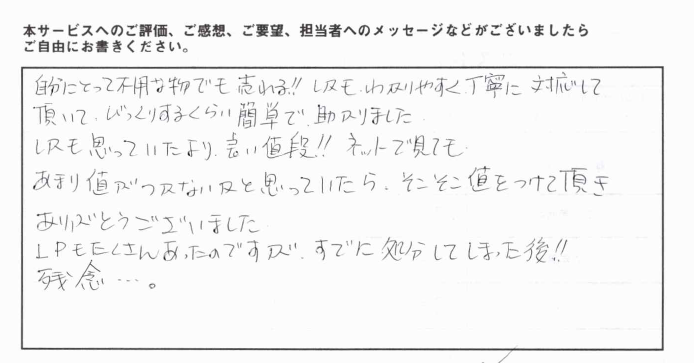 本サービスへのご評価、ご感想、ご要望、担当者へのメッセージなどがございましたら
ご自由にお書きください。
自分にとって不用な物でも売れる!! しかも、わかりやすく、丁寧に対応して
頂いて、びっくりするくらい簡単で、助かりました
しかも思っていたより、高い値段!! ネットで見ても
あまり値がつかないかと思っていたら、そこそこ値をつけて頂き
ありがとうございました
LPもたくさんあったのですが、すでに処分してしまった後!!
残念…。